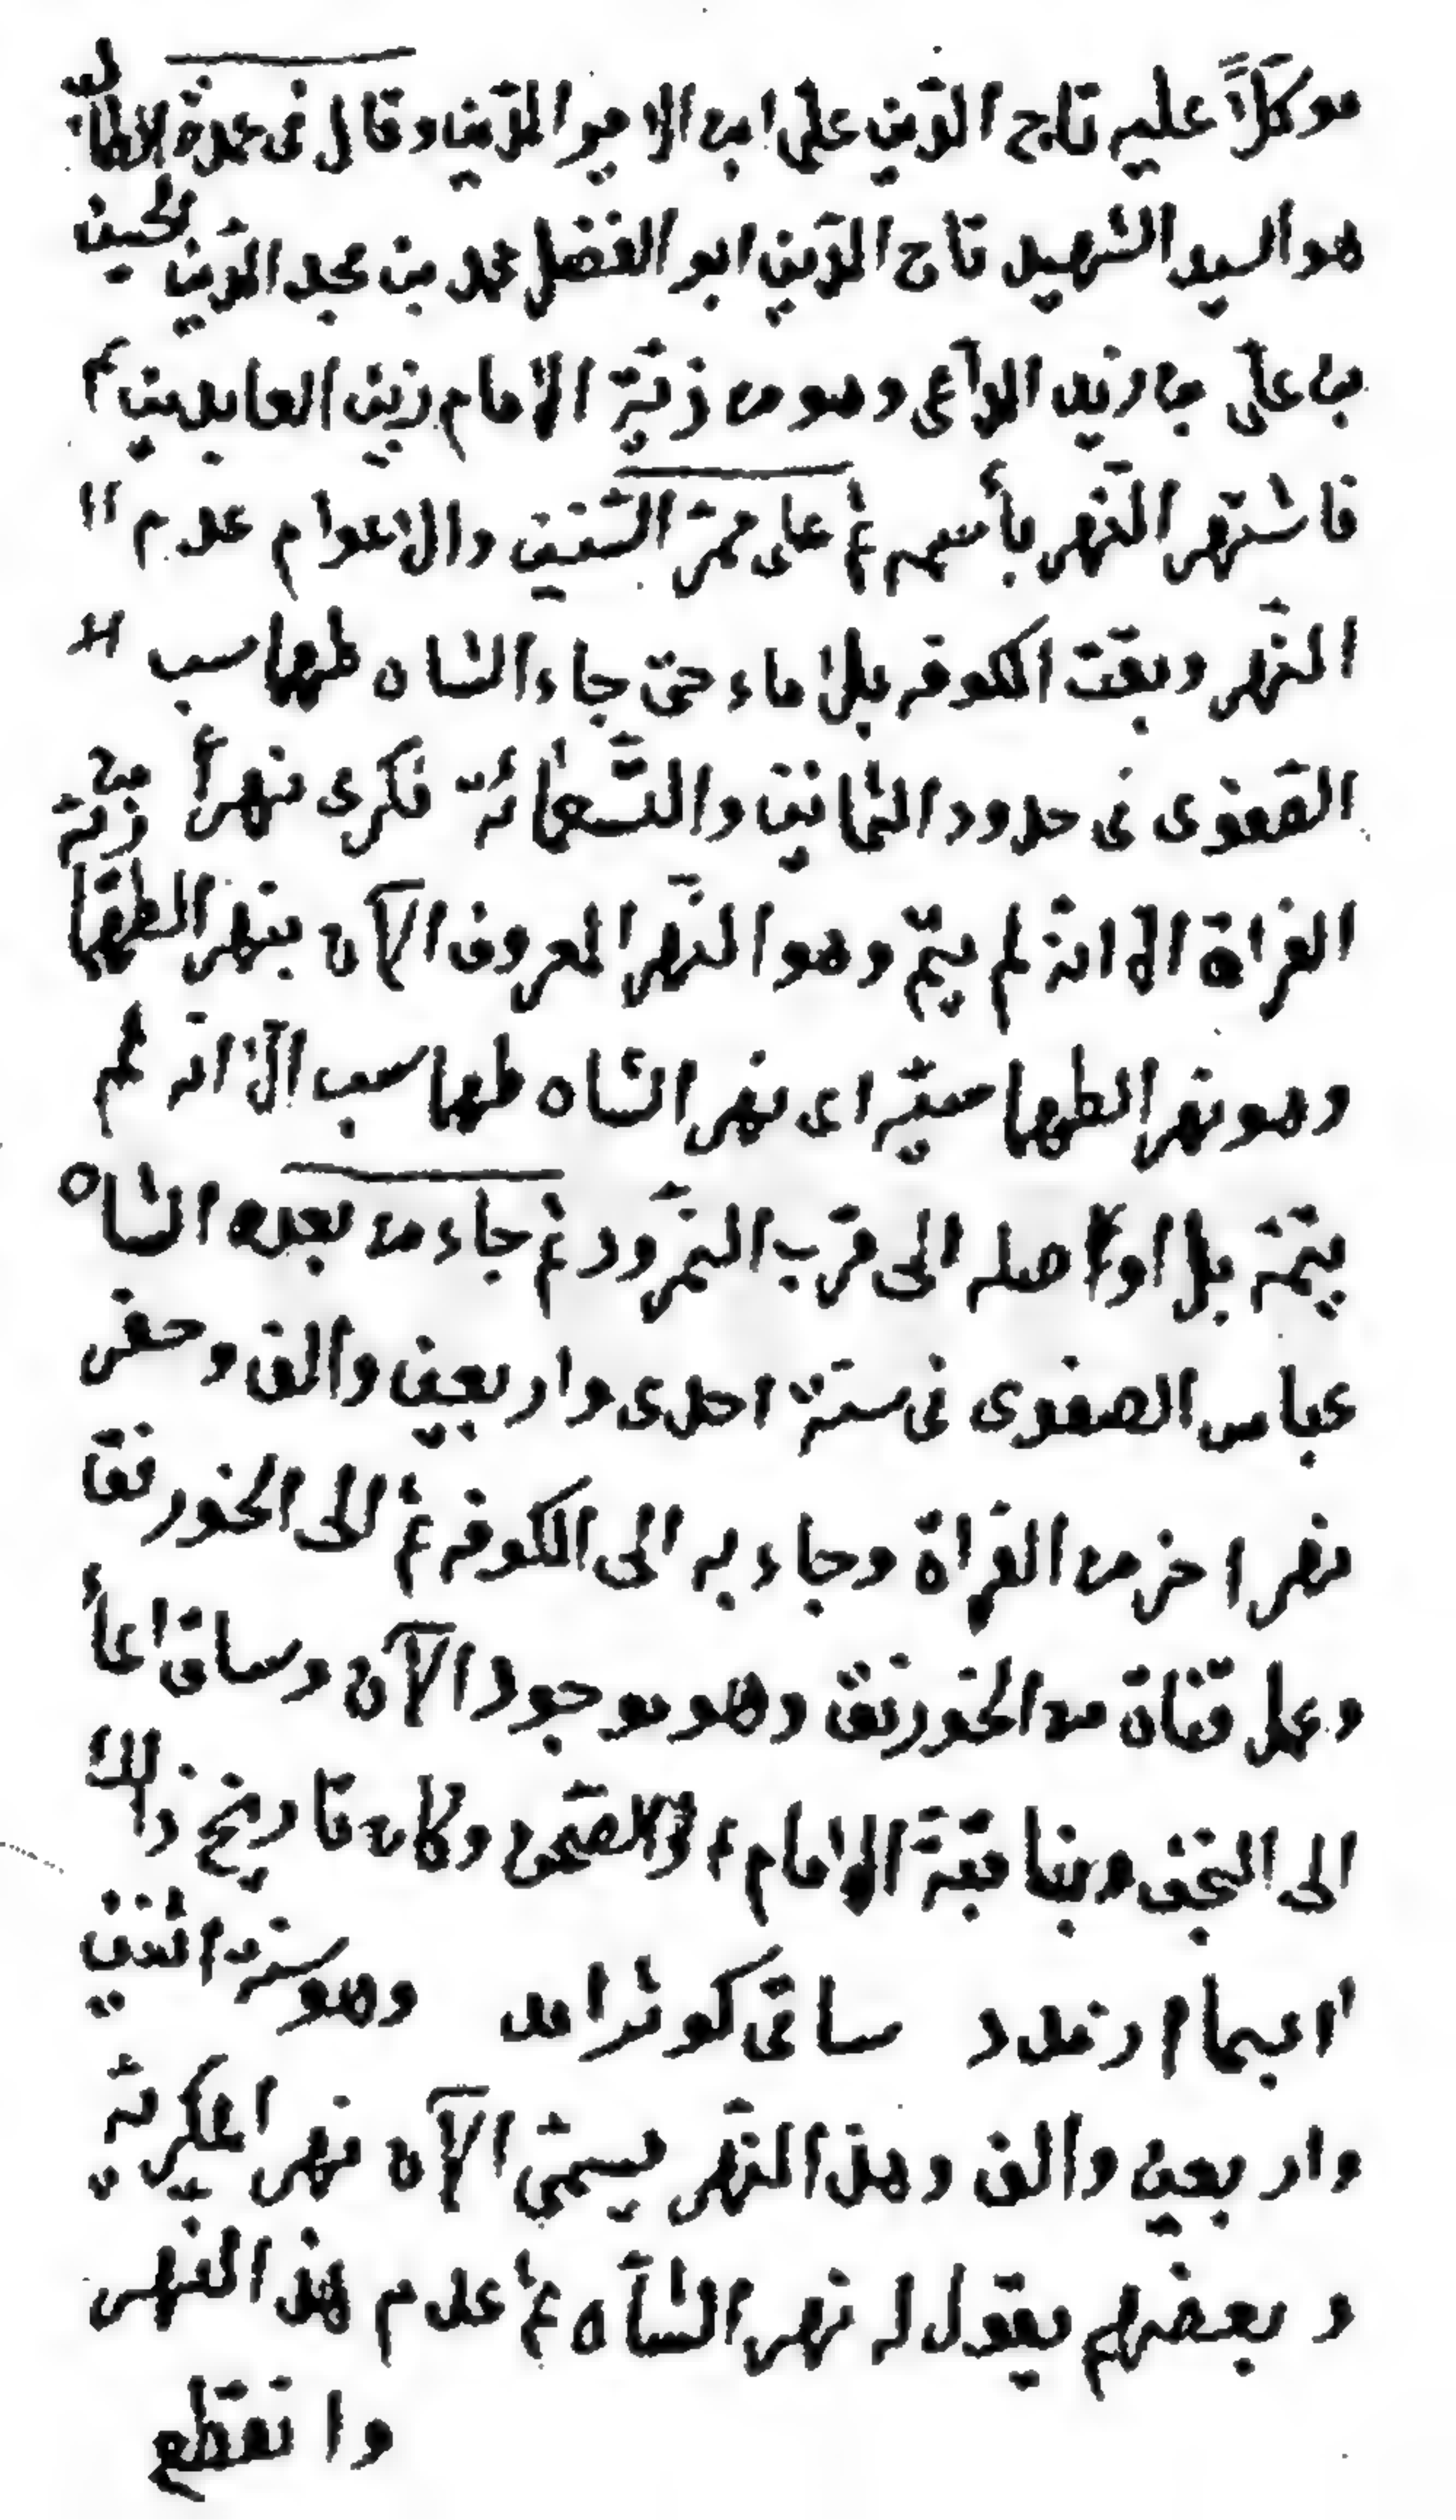 موكلاً عليه تاج الدّين علي ابن الامير الدّين وقال في عمدة الطالب
هو السيد الشهيد تاج الدّين ابو الفضل محمد بن مجد الدّين الحسين
بن علّي بن زيد الداعي وهو من ذريّة الامام زين العابدين ع
فاشتهر النّهر بأسمه ثم على ممرّ السّنين والاعوام عدم
النّهر وبقت الكوفه بلا ماء حتى جاء الشاه طهماسب
الصّفوى فى حدود الثمانين والتّسعمائة فكرى نهراً من
الفراة الا انه لم يتمّ وهو النّهر المعروف الآن بنهر الطهما
وهو نهر الطهماسيّه اى نهر الشاه طهماسب الّا انّه لم
يتمّه بل اوصله الى قرب النمرّود ثم جاء من بعده الشاه
عباس الصفوى فى سنة احدى واربعين والف وحفر
نهر اخر من الفراة وجاء به الى الكوفه ثم الى الخورنق
وعمل قناة من الخورنق وهو موجود الآن وساق الماء
الى النجف وبنا قبّة الامام ع والصّحن وكان تاريخ ذالك
ساقى كوثر امد وهو سنة اثنين
واربعين والف وهذا النّهر يسمّى الآن نهر المكريّه
وبعضهم يقول له نهر الشاه ثم عدم هذا النهر
وانقطع